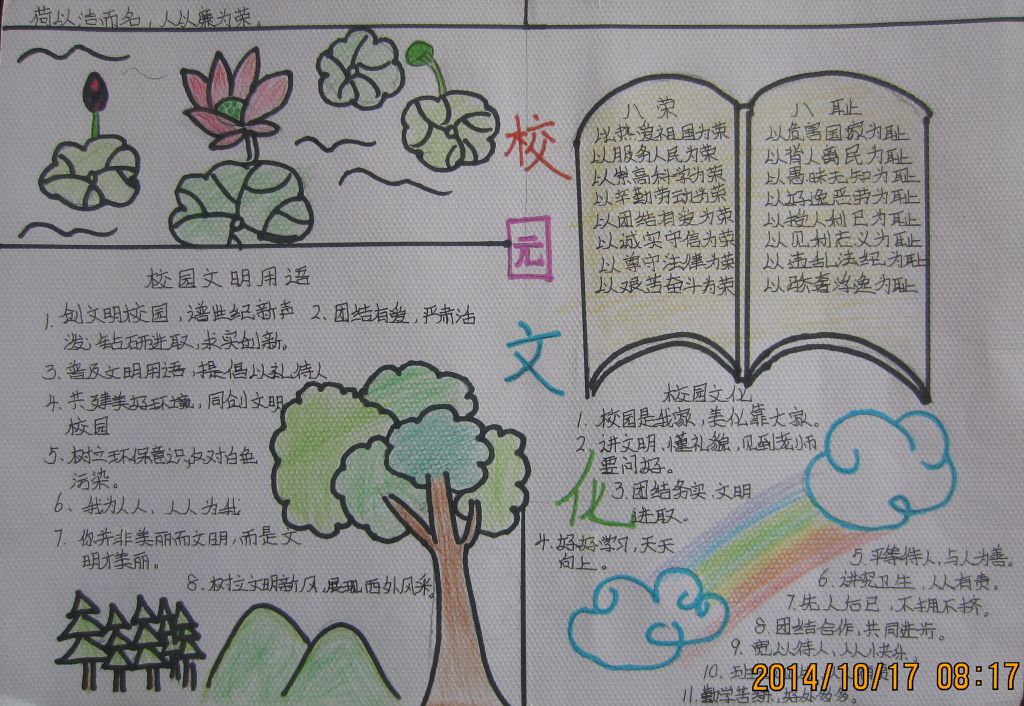 荷以洁而名，人以廉为荣。
校
园
文
化
八荣
以热爱祖国为荣
以服务人民为荣
以崇高科学为荣
以辛勤劳动为荣
以团结有爱为荣
以诚实守信为荣
以尊守法律为荣
以艰苦奋斗为荣
八耻
以危害国家为耻
以背人离民为耻
以愚昧无知为耻
以好逸恶劳为耻
以损人利己为耻
以见利忘义为耻
以违乱法纪为耻
以骄奢淫逸为耻
校园文明用语
1. 创文明校园，谱世纪新声
2. 团结有爱，严肃活
泼，钻研进取，求实创新。
3. 普及文明用语，提倡以礼待人
4. 共建美好环境，同创文明
校园
5. 树立环保意识，反对白色
污染。
6、我为人人，人人为我
7. 你并非美丽而文明，而是文
明才美丽。
8. 树立文明新风，展现西外风采。
校园文化
1. 校园是我家，美化靠大家。
2. 讲文明，懂礼貌，见到老师
要问好。
3. 团结务实，文明
进取。
4. 好好学习，天天
向上。
5. 平等待人，与人为善。
6. 讲究卫生，人人有责。
7. 先人后己，不拥不挤。
8. 团结合作，共同进步。
9. 宽以待人，人人快乐。
10.
11. 勤学苦练，好处多多。
2014/10/17 08:17